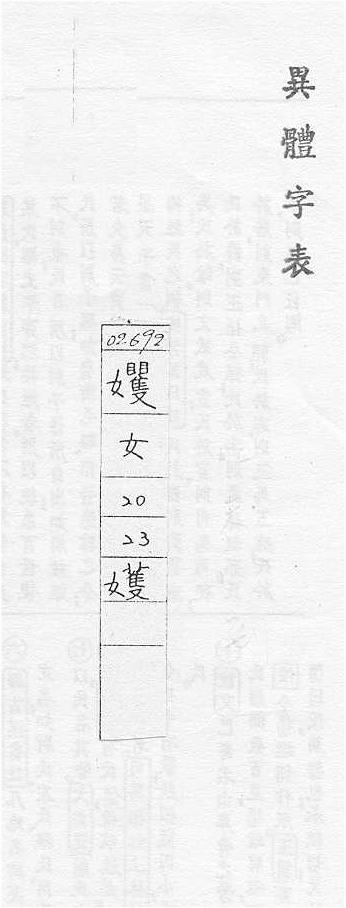 異體字表
02.692
女
20
23
嬳